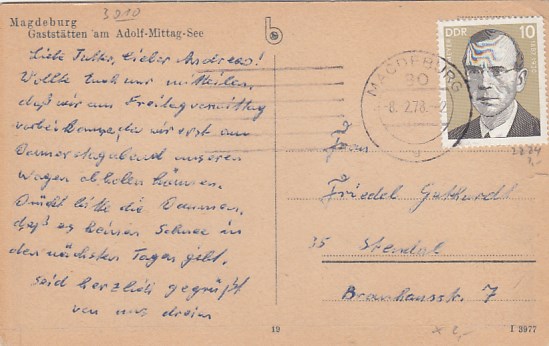 3010
Magdeburg
Gaststätten am Adolf-Mittag-See
b
DDR 10
MAGDEBURG
BO
-8. 2.78.-2
g
Liebe Mutter, lieber Andreas!
Wollte Euch nur mitteilen,
daß wir am Freitagvormittag
vorbei kommen, da wir erst am
Donnerstagabend unseren
Wagen abholen können.
Drückt bitte die Daumen,
daß es keinen Schnee in
den nächsten Tagen gibt.
Seid herzlich gegrüßt
von uns dreien
Frau
Friedel Gutthardt
35 Stendal
Brauhausstr. 7
19
I 3977
x 2,-